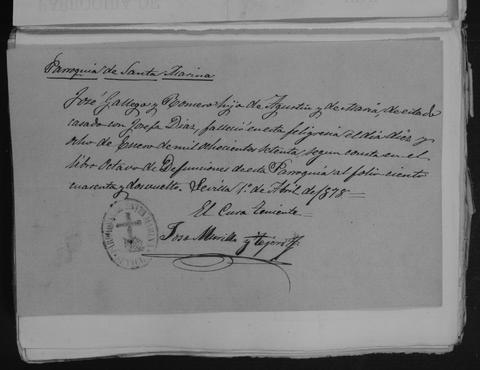 Parroquia de Santa Marina
José Gallego y Romero hijo de Agustin y de Maria, de estado
casado con Josefa Diaz, falleció en esta feligresia el dia diez y
ocho de Enero de mil ochocientos setenta, segun consta en el
libro Octavo de Defunciones de esta Parroquia al folio ciento
cuarenta y dos vuelto. Sevilla 1º de Abril de 1878=
El Cura Teniente=
Jose Murillo y